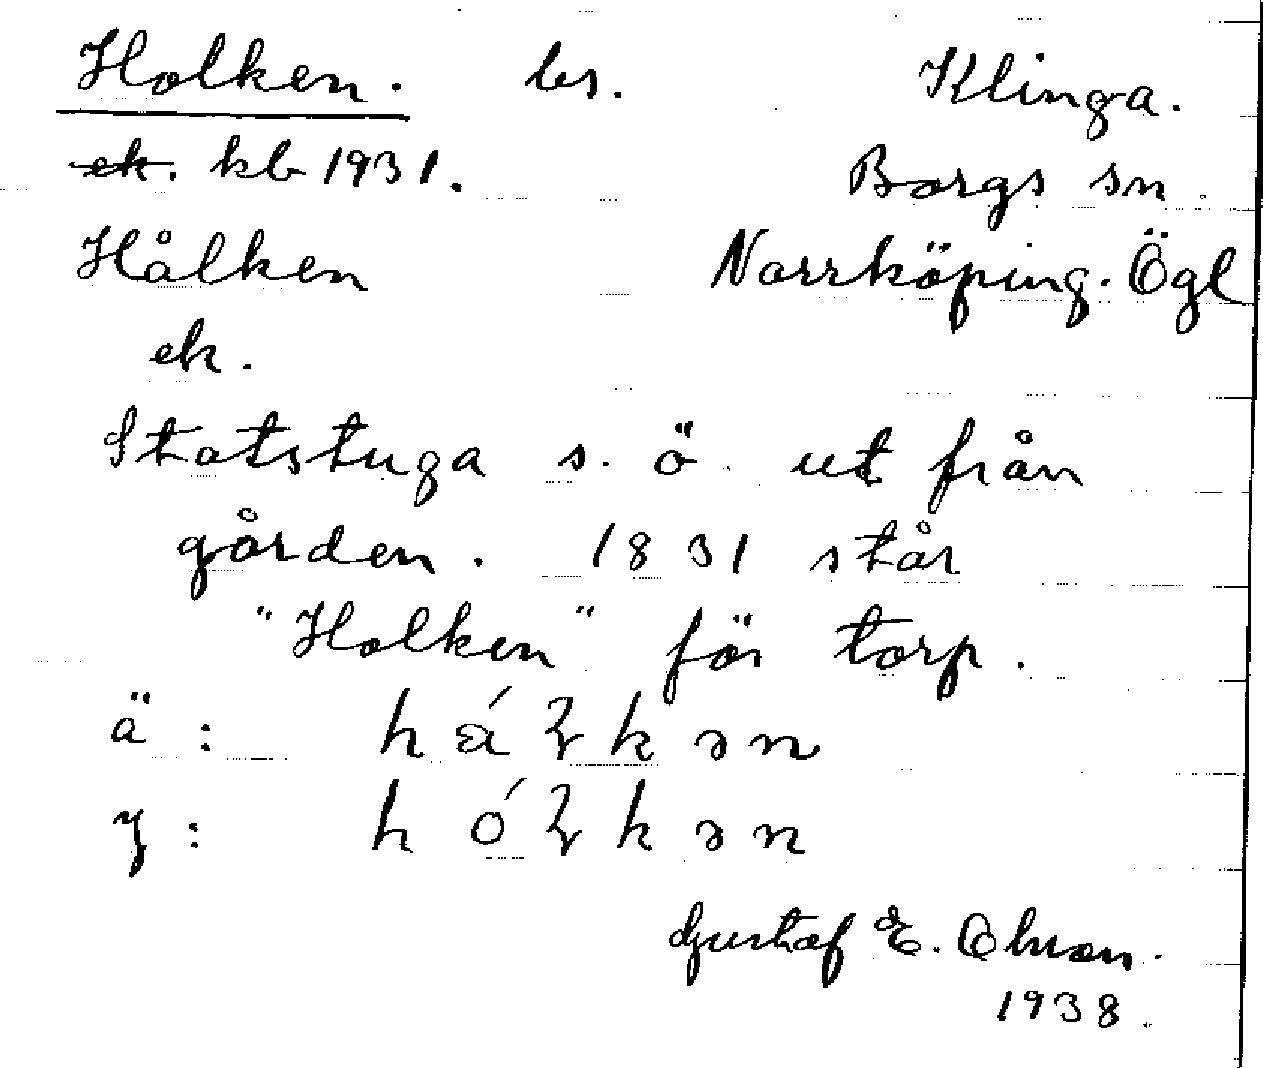 Holken. bs. Klinga.
ek. kb 1931. Borgs sn.
Hålken Norrköping. Ögl
ek.
Statstuga s. ö. ut från
gården. 1831 står
"Holken" för torp.
ä:
y:
Gustaf E. Olsson.
1938.